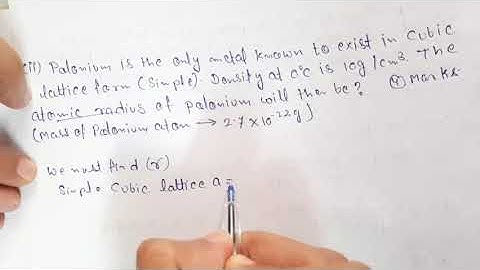 (ii) Palonium is the only metal known to exist in Cubic
lattice form (Simple). Density at 0°C is 10g/cm³. The
atomic radius of palonium will then be? (4) Marks
(Mass of Palonium atom → 2.7 × 10⁻²²g)
We must find (r)
Simple Cubic lattice a =